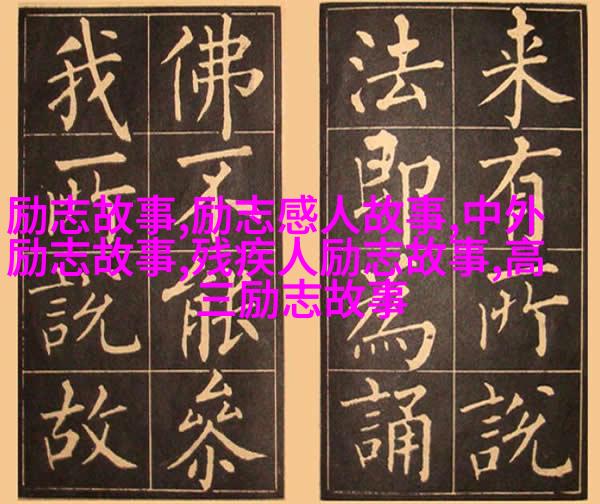 来有所説
法即為誦
佛不能叅
我所説故
励志故事,励志感人故事,中外
励志故事,残疾人励志故事,高
三励志故事